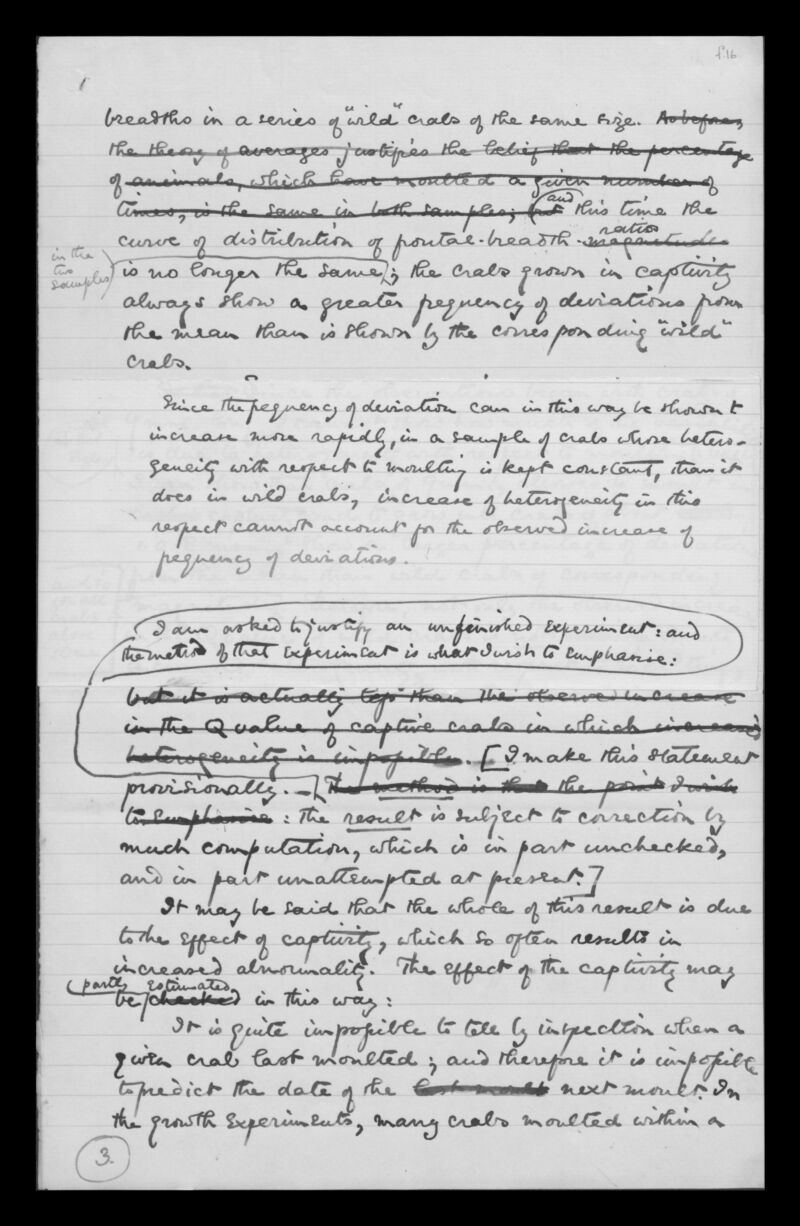 f.16
breadths in a series of "wild" crabs of the same size. As before,
the theory of averages justifies the belief that the percentage
of animals, which have moulted a given number of
times, is the same in both samples; but and this time the
curve of distribution of frontal-breadth-magnitudes ratios
in the two samples
is no longer the same; the crabs grown in captivity
always show a greater frequency of deviations from
the mean than is shown by the corresponding "wild"
crabs.
Since the frequency of deviation can in this way be shown to
increase more rapidly, in a sample of crabs whose hetero-
geneity with respect to moulting is kept constant, than it
does in wild crabs, increase of heterogeneity in this
respect cannot account for the observed increase of
frequency of deviations.
I am asked to justify an unfinished experiment: and
the method of that experiment is what I wish to emphasise:
but it is actually less than the observed increase
in the Q value of captive crabs in which increased
heterogeneity is impossible. [I make this statement
provisionally. — [The method is that the point I wish
to emphasise: the result is subject to correction by
much computation, which is in part unchecked,
and in part unattempted at present.]
It may be said that the whole of this result is due
to the effect of captivity, which so often results in
increased abnormality. The effect of the captivity may
partly estimated
be checked in this way:
It is quite impossible to tell by inspection when a
given crab last moulted; and therefore it is impossible
to predict the date of the last moult next moult. In
the growth experiments, many crabs moulted within a
3.